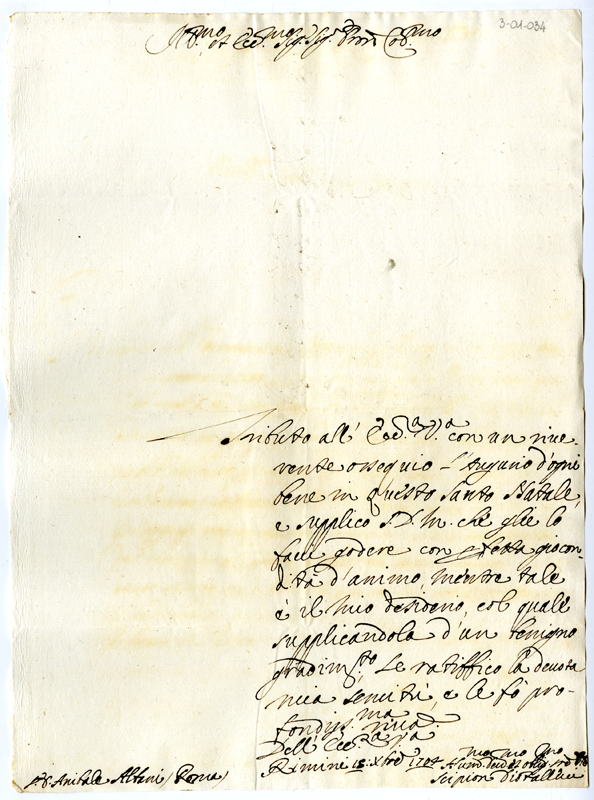 3-01-034
Ill.mo et Ecc.mo Sig.r Sig.r Pron Col.mo
Tributo all' Ecc.a V.a con un rive-
rente ossequio l'augurio d'ogni
bene in questo Santo Natale,
e supplico S. D. M. che glie lo
facci godere con perfetta giocon-
dità d'animo, mentre tale
è il mio desiderio, col quale
supplicandola d'un benigno
gradim.to, Le ratiffico la devota
mia servitù, e le fò pro-
fondiss.ma riva.
Dell' Ecc.a V.a
Rimine 15 Xbre 1704
S.r D. Anibale Albani / Roma /
Scipion Diotallevi